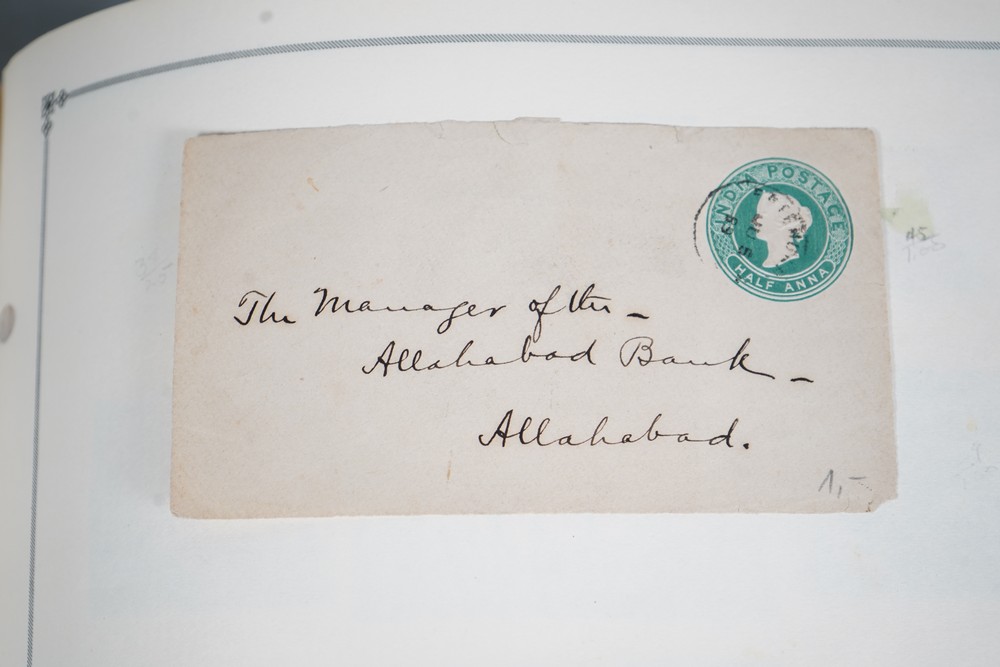 INDIA POSTAGE
HALF ANNA
The Manager of the -
Allahabad Bank -
Allahabad.
1,-